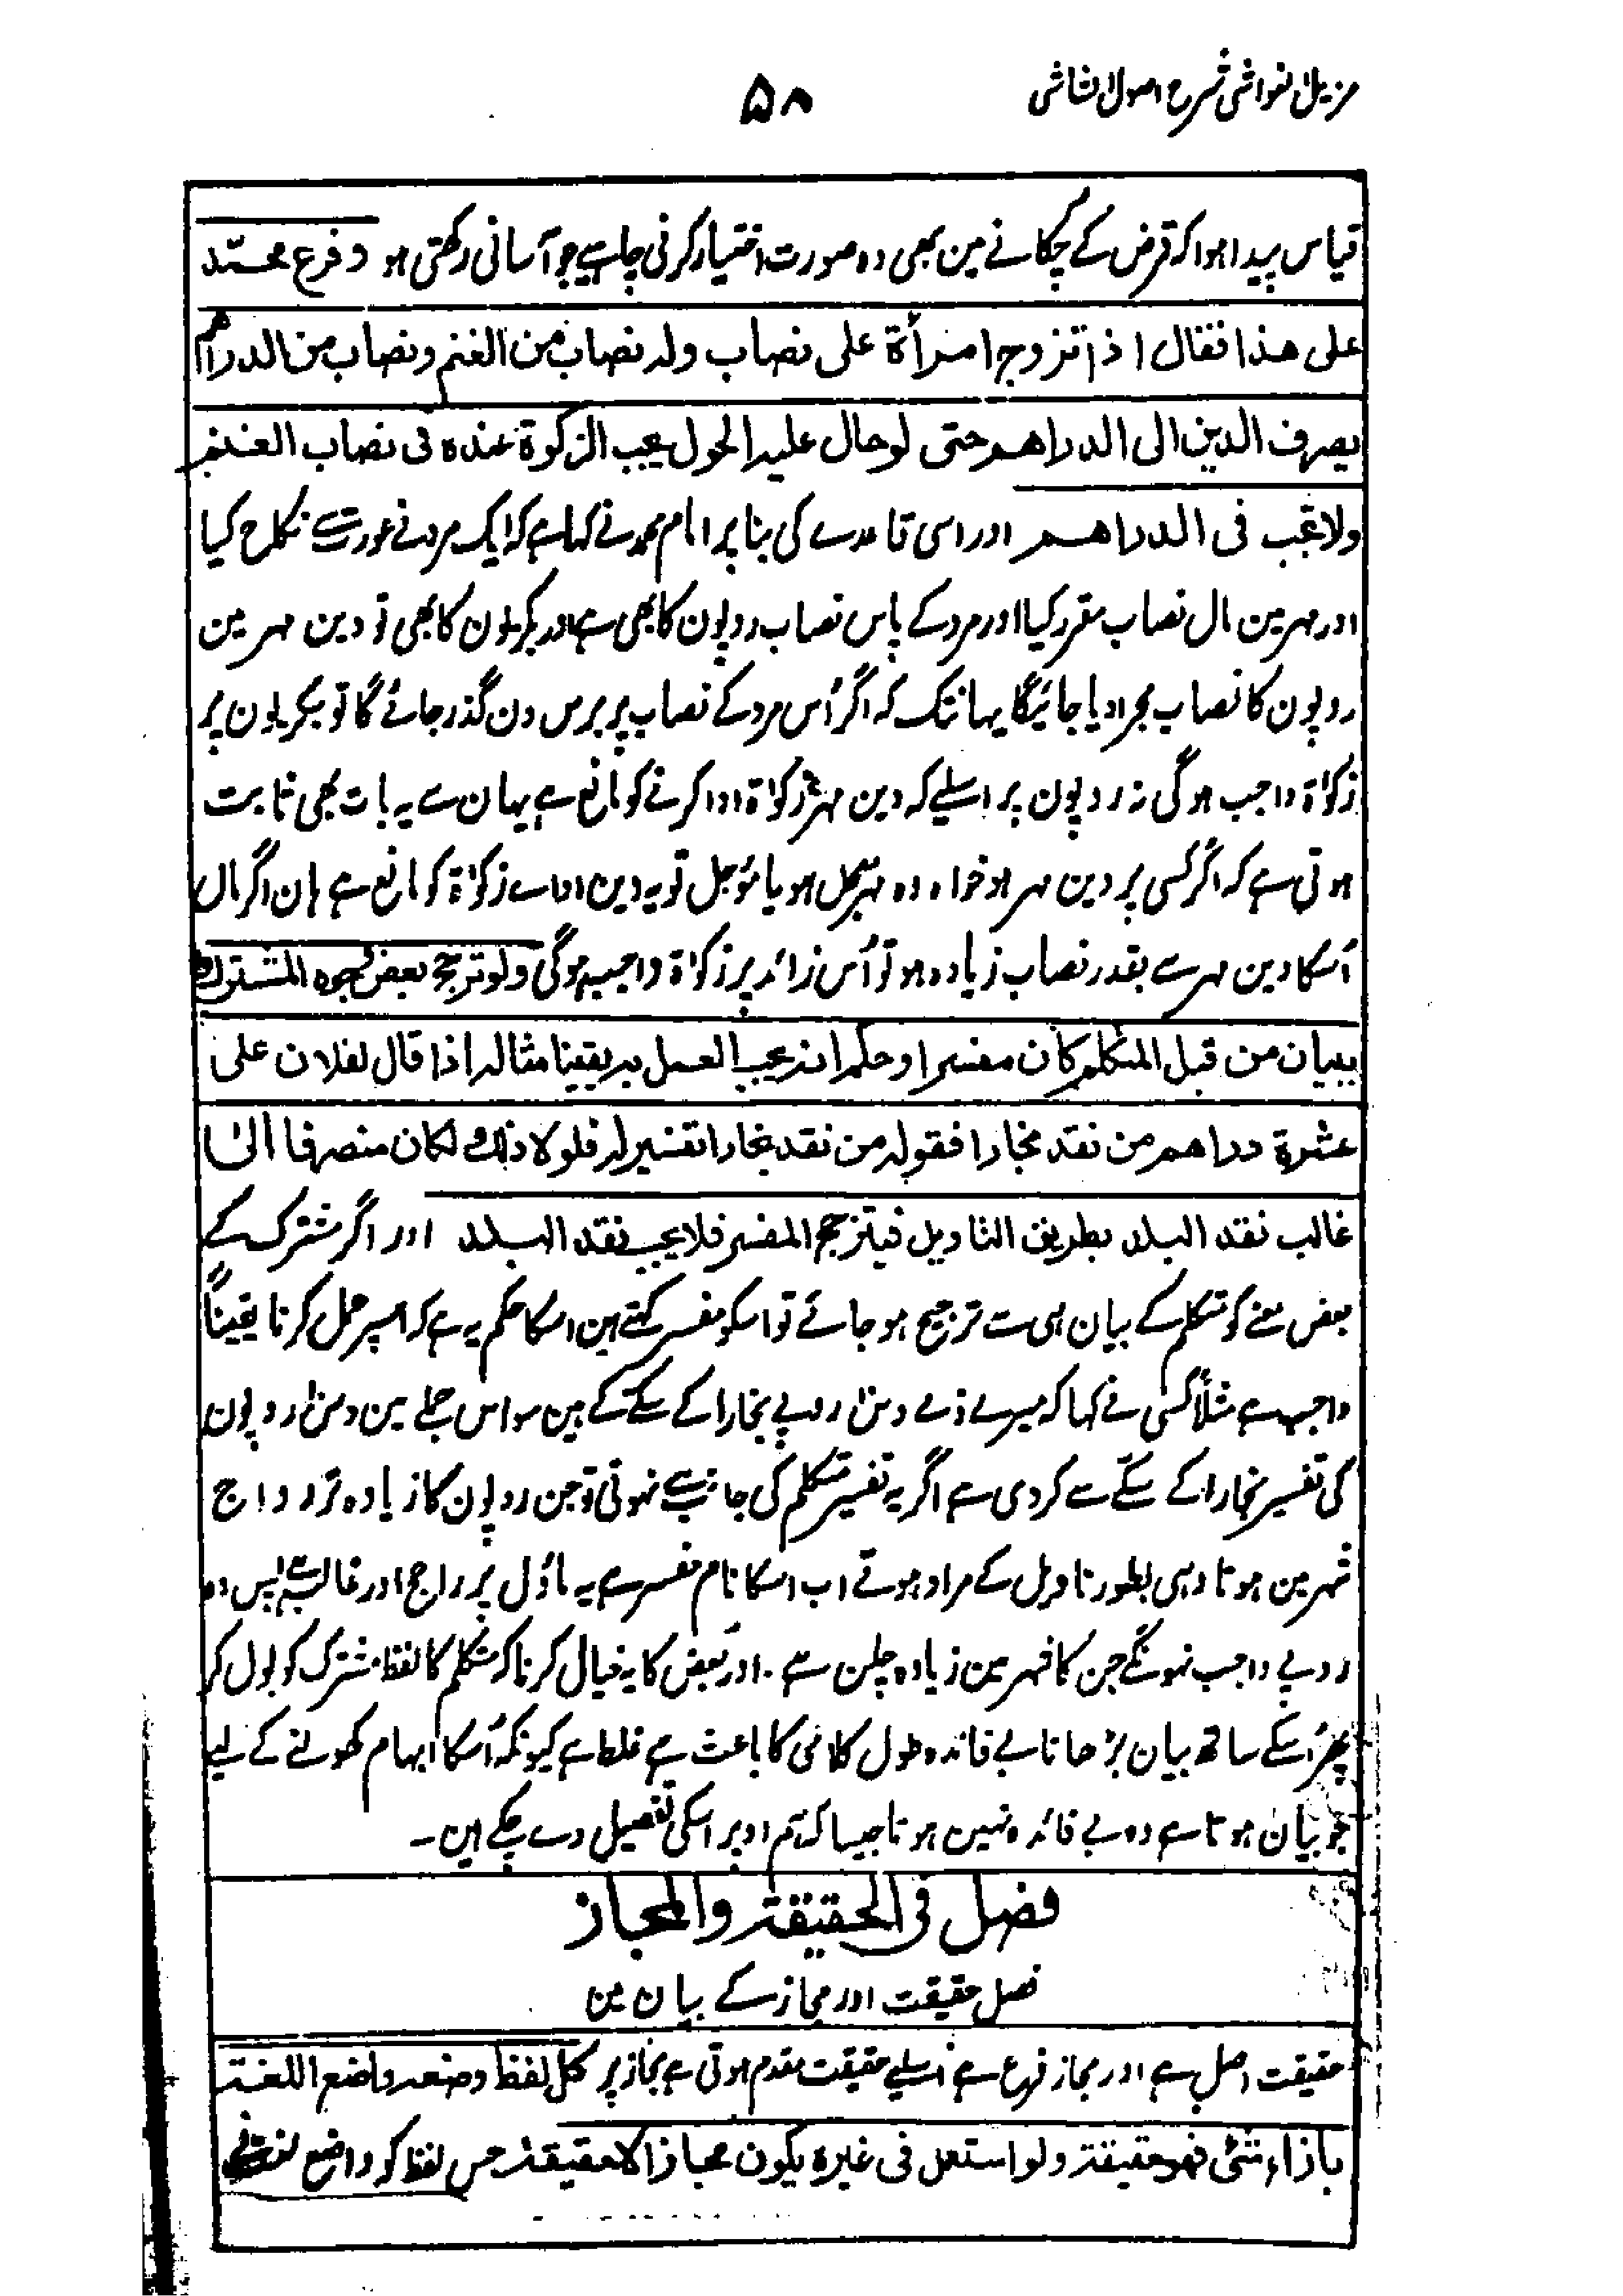 مزیل الغواشی شرح اصول الشاشی
۵۸
قیاس پیدا ہوا کہ قرض کے چکانے مین بھی وہ صورت اختیار کرنی چاہیے جو آسانی رکھتی ہو وفرع محمّد
علی هذا فقال اذا تزوج امرأة علی نصاب وله نصاب من الغنم ونصاب من الدراهم
یصرف الدین الی الدراهم حتی لو حال علیه الحول یجب الزکوة عنده فی نصاب الغنم
ولا تجب فی الدراهم اور اسی قاعدے کی بنا پر امام محمد نے کہا ہے کہ ایک مرد نے عورت سے نکاح کیا
اور مہر مین مال نصاب مقرر کیا اور مرد کے پاس نصاب روپون کا بھی ہے اور بکریون کا بھی تو دین مہر مین
روپون کا نصاب مجرا دیا جائیگا یہانتک کہ اگر اُس مرد کے نصاب پر برس دن گذر جائے گا تو بکریون پر
زکوٰة واجب ہوگی نہ روپون پر اسلیے کہ دین مہر زکوٰة ادا کرنے کو مانع ہے یہان سے یہ بات بھی ثابت
ہوتی ہے کہ اگر کسی پر دین مہر ہو خواہ وہ مہر معجل ہو یا مؤجل تو یہ دین اداے زکوٰة کو مانع ہے ہان اگر مال
اُسکا دین مہر سے بقدر نصاب زیادہ ہو تو اُس زائد پر زکوٰة واجب ہوگی ولو ترجح بعض وجوه المشترك
ببیان من قبل المتکلم کان مفسرا وحکمه انه یجب العمل به یقینا مثاله اذا قال لفلان علی
عشرة دراهم من نقد بخارا فقوله من نقد بخارا تفسیر له فلولا ذلك لکان منصرفا الیٰ
غالب نقد البلد بطریق التاویل فیترجح المفسر فلا یجب نقد البلد اور اگر مشترک کے
بعض معنے کو متکلم کے بیان ہی سے ترجیح ہو جائے تو اسکو مفسر کہتے ہین اسکا حکم یہ ہے کہ اسپر عمل کرنا یقیناً
واجب ہے مثلاً کسی نے کہا کہ میرے ذمے دس روپے بخارا کے سکّے کے ہین سو اس جملے مین دس روپون
کی تفسیر بخارا کے سکّے سے کردی ہے اگر یہ تفسیر متکلم کی جانب سے نہوتی تو جن روپون کا زیادہ تر رواج
شہر مین ہوتا وہی بطور تاویل کے مراد ہوتے اب اسکا نام مفسر ہے یہ ماؤل پر راجح اور غالب ہے پس وہ
روپے واجب نہونگے جن کا شہر مین زیادہ چلن ہے ۔ اور بعض کا یہ خیال کرنا کہ متکلم کا لفظ مشترک کو بول کر
پھر اسکے ساتھ بیان بڑھانا بے فائدہ طول کلامی کا باعث ہے غلط ہے کیونکہ اُسکا ابہام کھولنے کے لیے
جو بیان ہوتا ہے وہ بے فائدہ نہین ہوتا جیسا کہ ہم اوپر اسکی تفصیل دے چکے ہین ۔
فصل فی الحقیقة والمجاز
فصل حقیقت اور مجاز کے بیان مین
حقیقت اصل ہے اور مجاز فرع ہے اسلیے حقیقت مقدم ہوتی ہے مجاز پر کل لفظ وضعه واضع اللغة
بازاء شئی فهو حقیقة ولو استعمل فی غیره یکون مجازا لا حقیقة جس لفظ کو واضع لغت نے